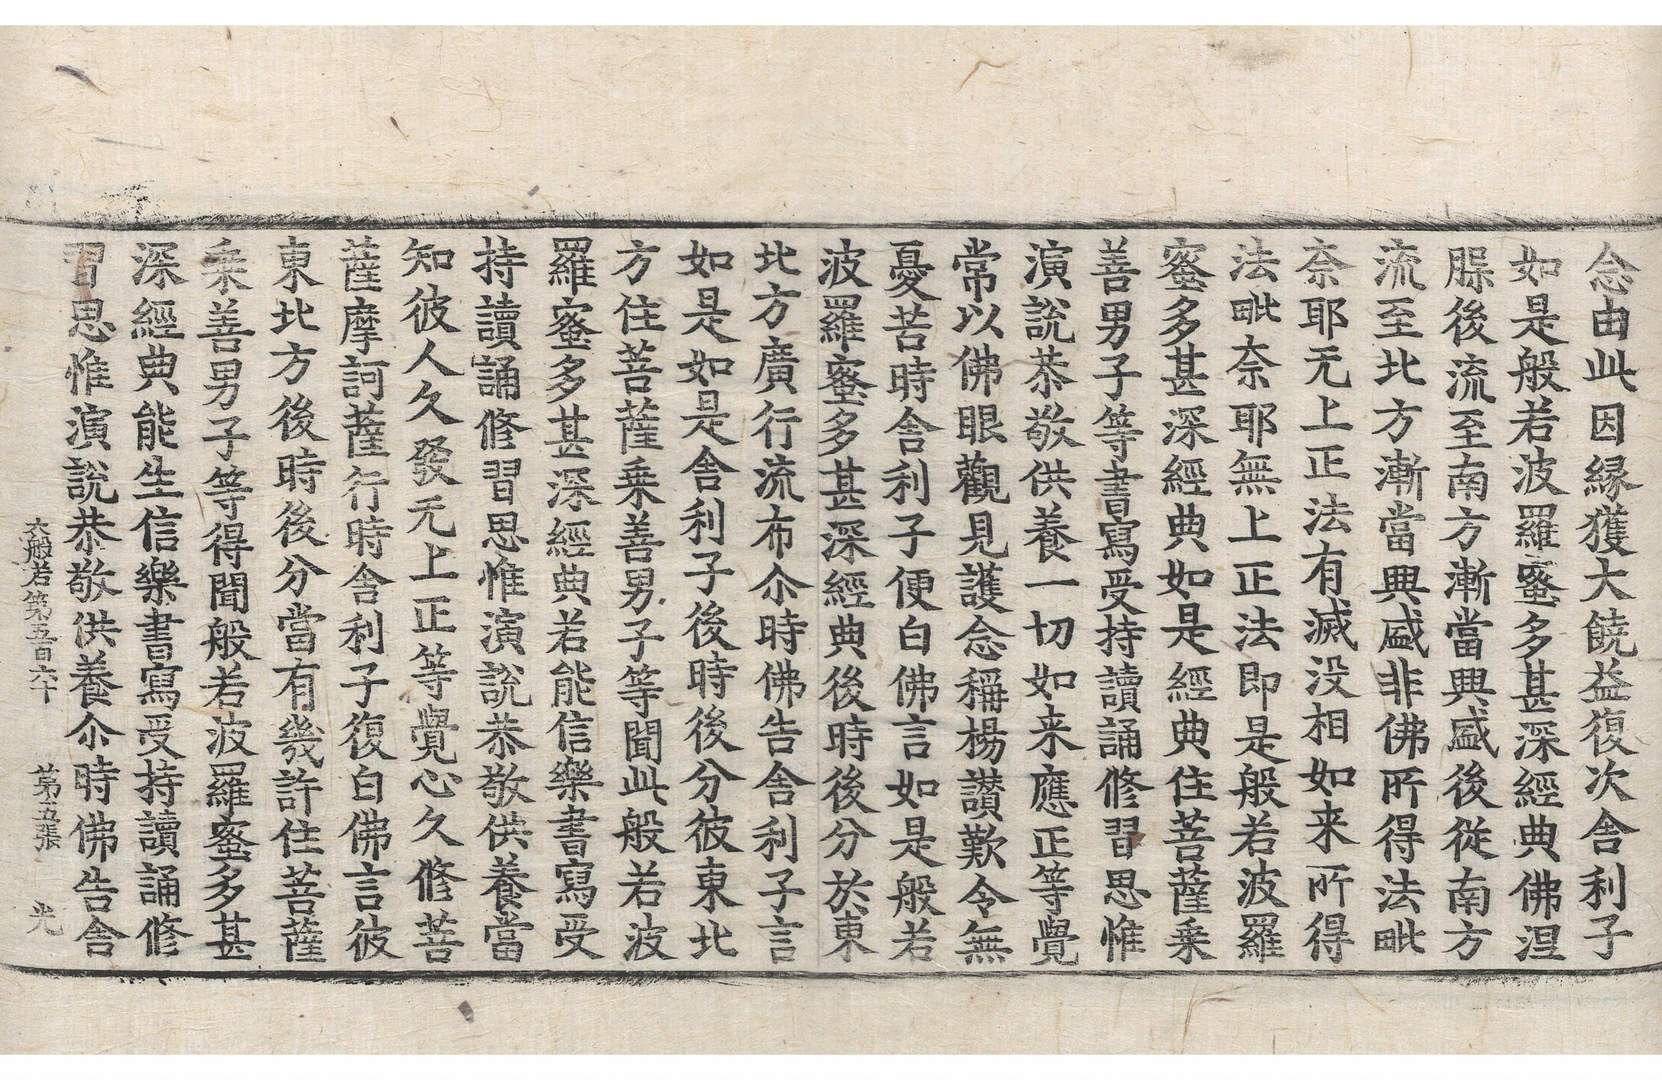 念由此因縁獲大饒益復次舍利子
如是般若波羅蜜多甚深經典佛涅
腂後流至南方漸當興盛後從南方
流至北方漸當興盛非佛所得法毗
奈耶无上正法有滅没相如来所得
法毗奈耶無上正法即是般若波羅
蜜多甚深經典如是經典住菩薩乗
善男子等書寫受持讀誦修習思惟
演說恭敬供養一切如来應正等覺
常以佛眼觀見護念稱楊讃歎令無
憂苦時舍利子便白佛言如是般若
波羅蜜多甚深經典後時後分於東
北方廣行流布尒時佛告舍利子言
如是如是舍利子後時後分彼東北
方住菩薩乗善男子等聞此般若波
羅蜜多甚深經典若能信樂書寫受
持讀誦修習思惟演說恭敬供養當
知彼人久發无上正等覺心久修菩
薩摩訶薩行時舍利子復白佛言彼
東北方後時後分當有幾許住菩薩
乗善男子等得聞般若波羅蜜多甚
深經典能生信樂書寫受持讀誦修
習思惟演說恭敬供養尒時佛告舍
大般若第五百六十 第五張 光